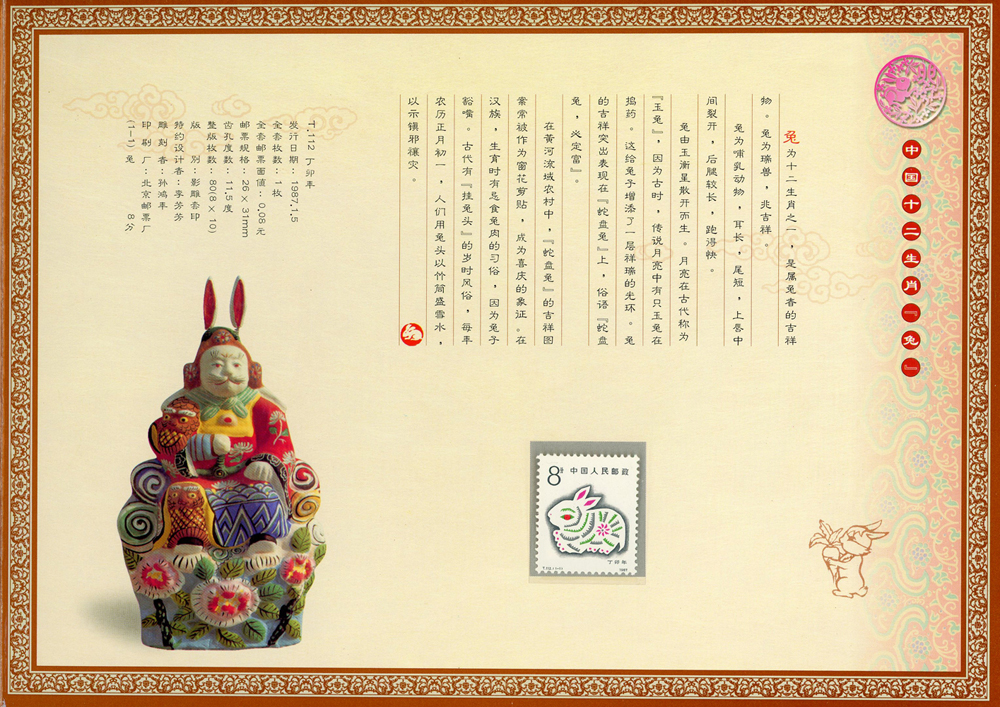 中国十二生肖『兔』
兔为十二生肖之一，是属兔者的吉祥
物。兔为瑞兽，兆吉祥。
兔为哺乳动物，耳长，尾短，上唇中
间裂开，后腿较长，跑得快。
兔由玉衡星散开而生。月亮在古代称为
『玉兔』，因为古时，传说月亮中有只玉兔在
捣药。这给兔子增添了一层祥瑞的光环。兔
的吉祥突出表现在『蛇盘兔』上，俗语『蛇盘
兔，必定富』。
在黄河流域农村中，『蛇盘兔』的吉祥图
案常被作为窗花剪贴，成为喜庆的象征。在
汉族，生育时有忌食兔肉的习俗，因为兔子
豁嘴。古代有『挂兔头』的岁时风俗，每年
农历正月初一，人们用兔头以竹筒盛雪水，
以示镇邪禳灾。
T.112 丁卯年
发行日期：1987.1.5
全套枚数：1枚
全套邮票面值：0.08元
邮票规格：26×31mm
齿孔度数：11.5度
整版枚数：80(8×10)
版别：影雕套印
特约设计者：李芳芳
雕刻者：孙鸿年
印刷厂：北京邮票厂
(1-1) 兔 8分
8分 中国人民邮政
丁卯年
T.112.(1-1) 1987